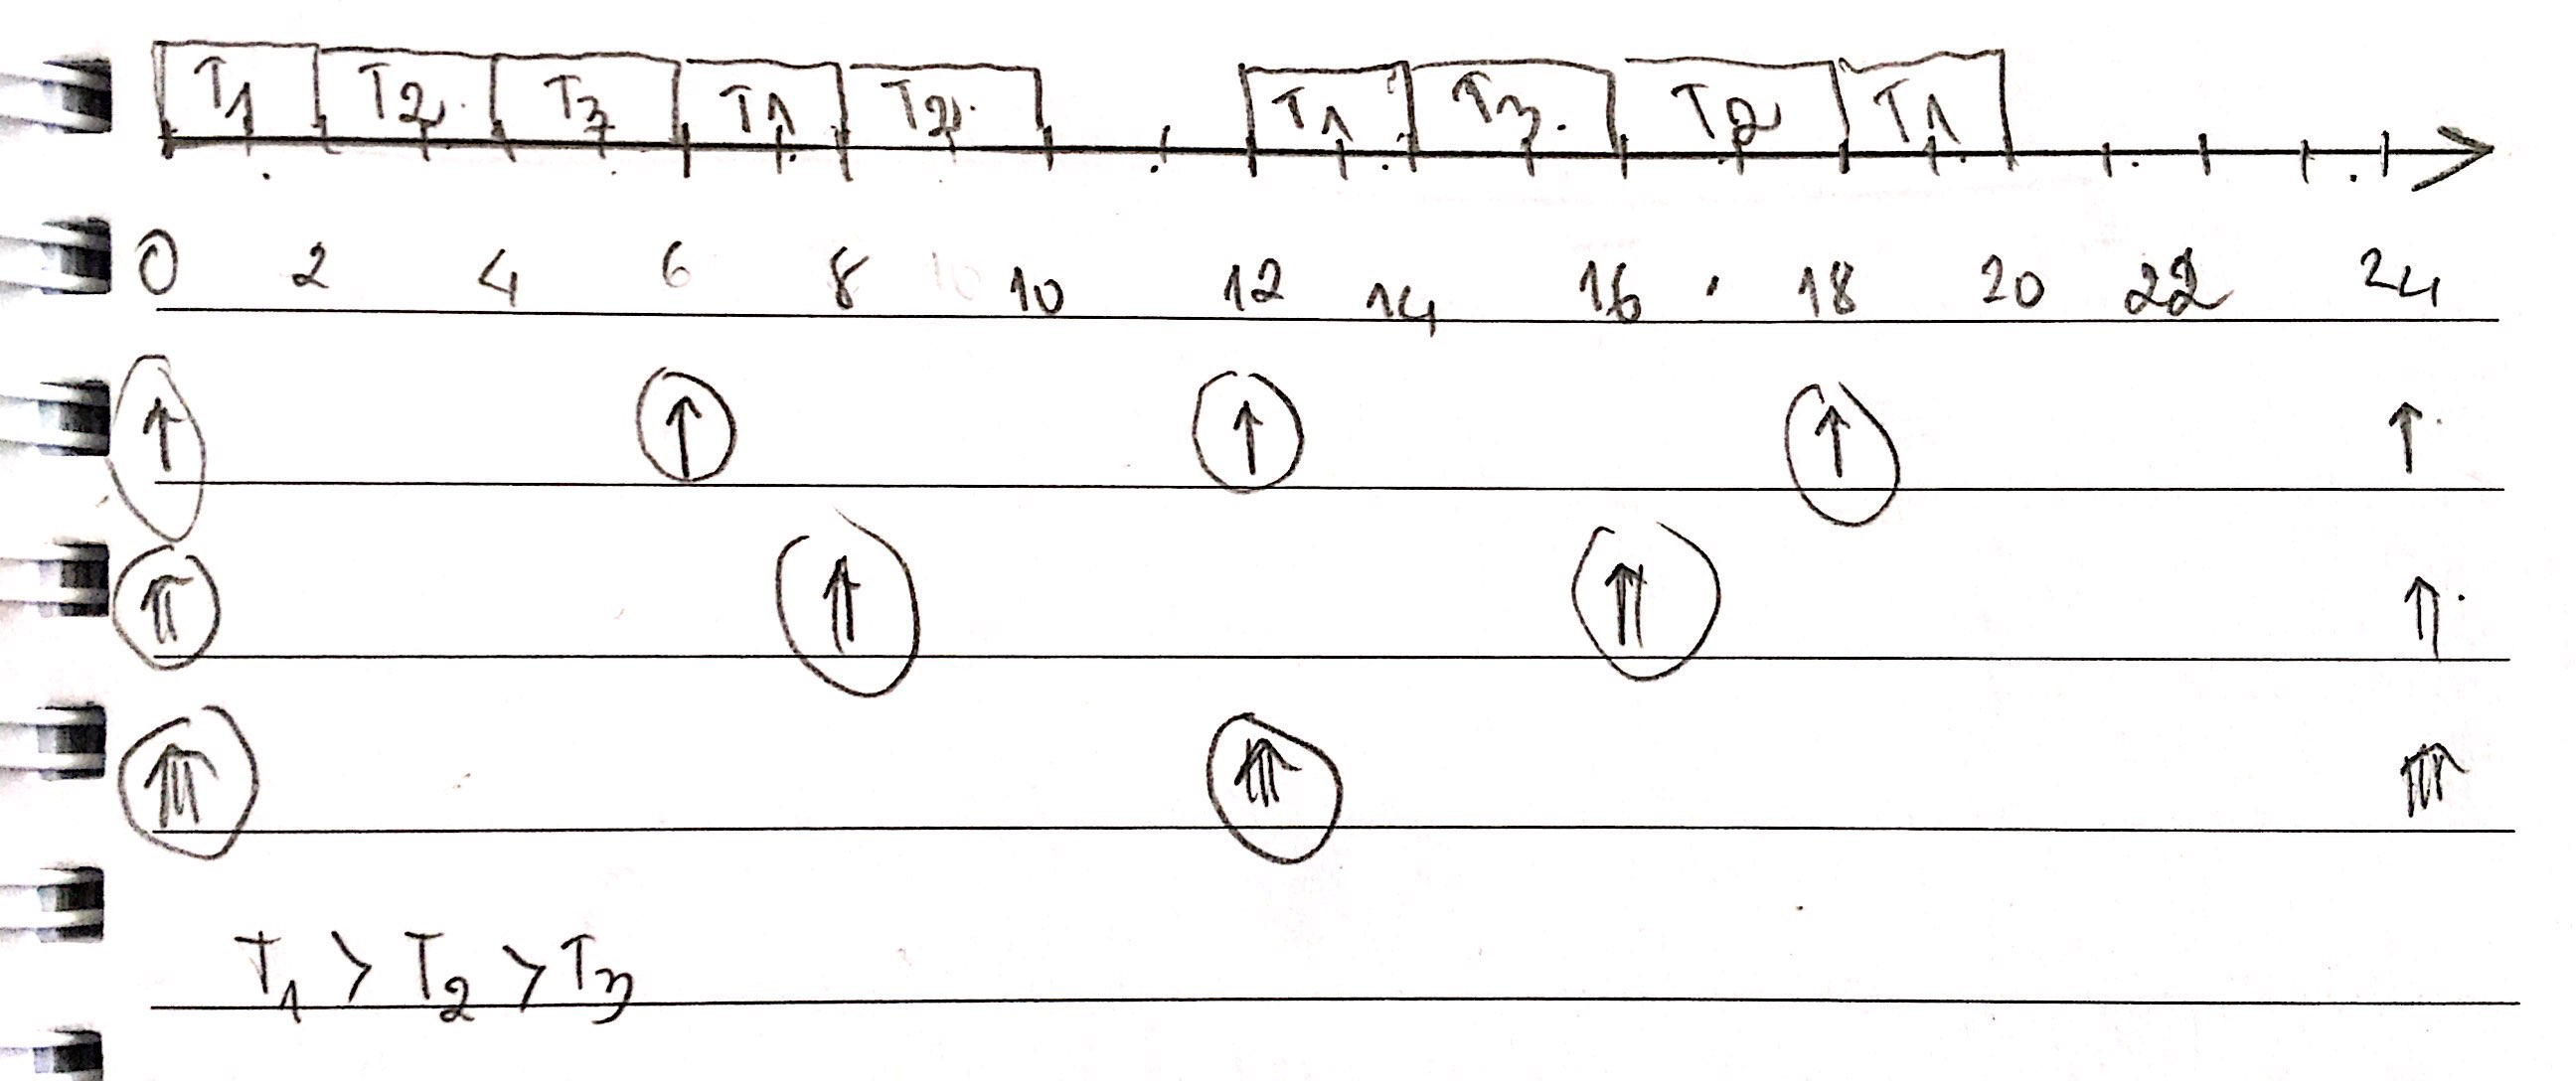 T1 T2 T3 T1 T2 T1 T3 T2 T1
0 2 4 6 8 10 12 14 16 18 20 22 24
↑ ↑ ↑ ↑ ↑
T1 > T2 > T3